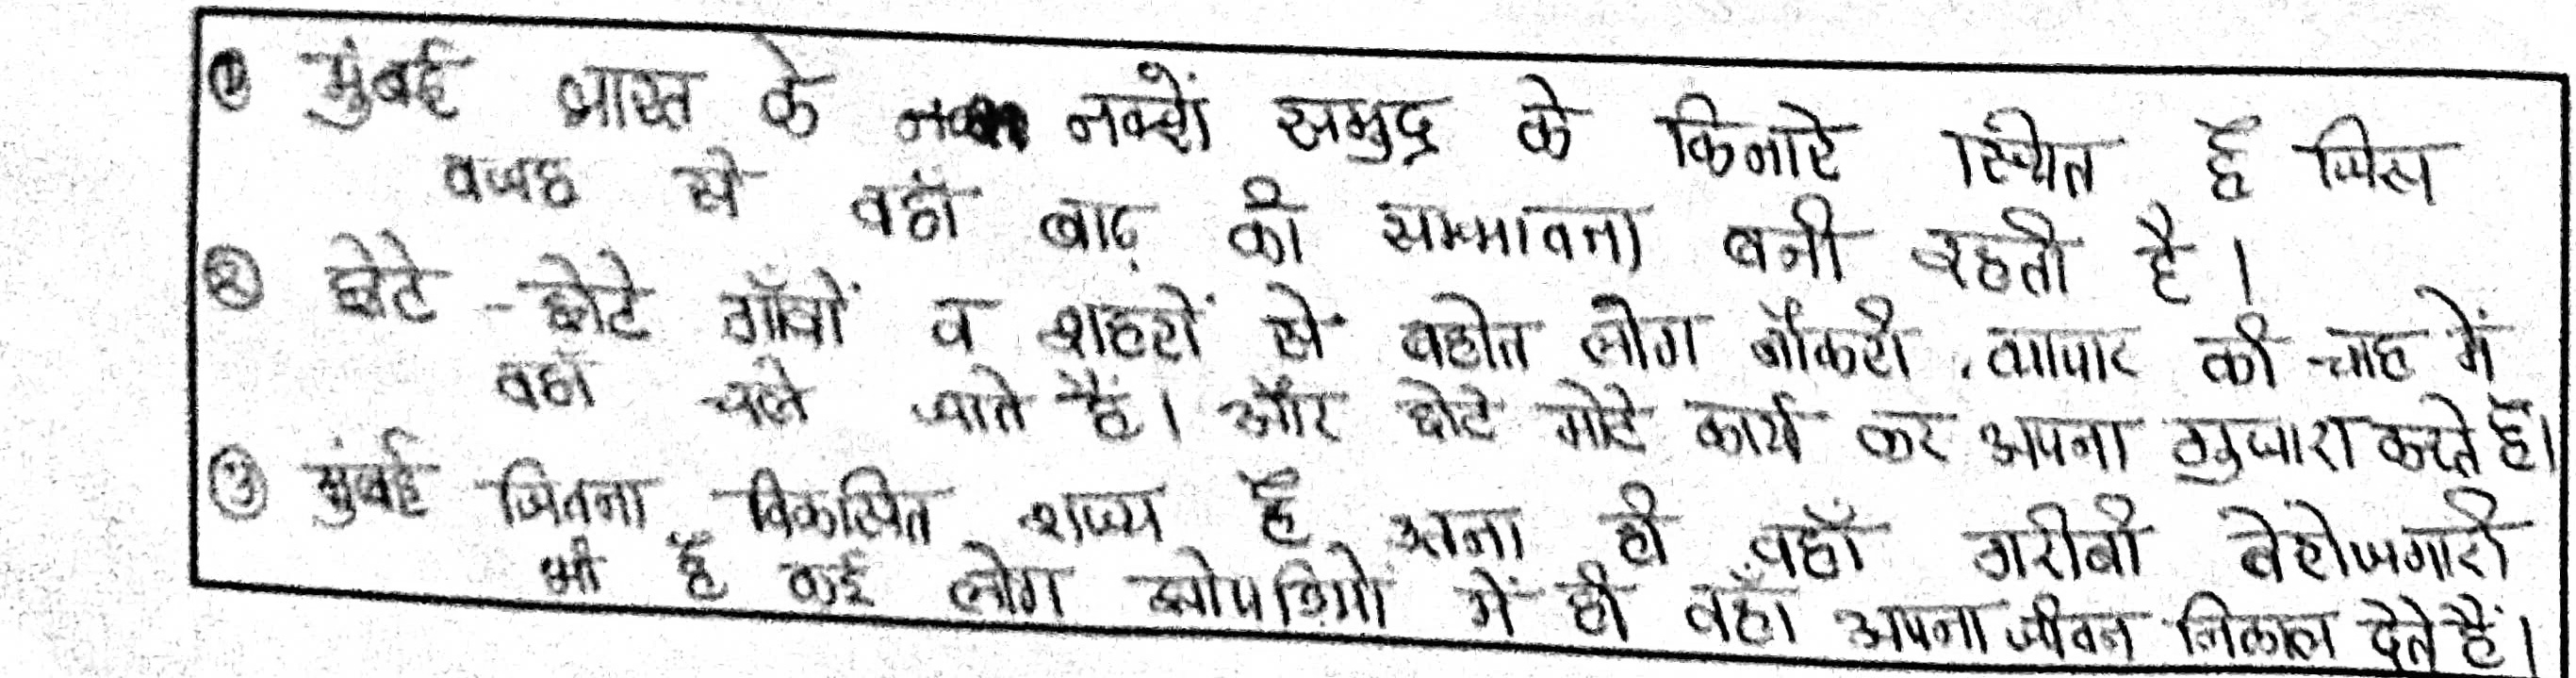 ① मुंबई भारत के नक्शें समुद्र के किनारे स्थित हैं जिस
वजह से वहाँ बाढ़ की सम्भावना बनी रहती है।
② छोटे -छोटे गाँवों व शहरों से बहोत लोग नौकरी , व्यापार की चाह में
वहाँ चले जाते हैं। और छोटे मोटे कार्य कर अपना गुजारा करते हैं।
③ मुंबई जितना विकसित राज्य हैं उतना ही वहाँ गरीबी बेरोजगारी
भी हैं कई लोग में ही वहाँ अपना जीवन निकाल देते हैं।